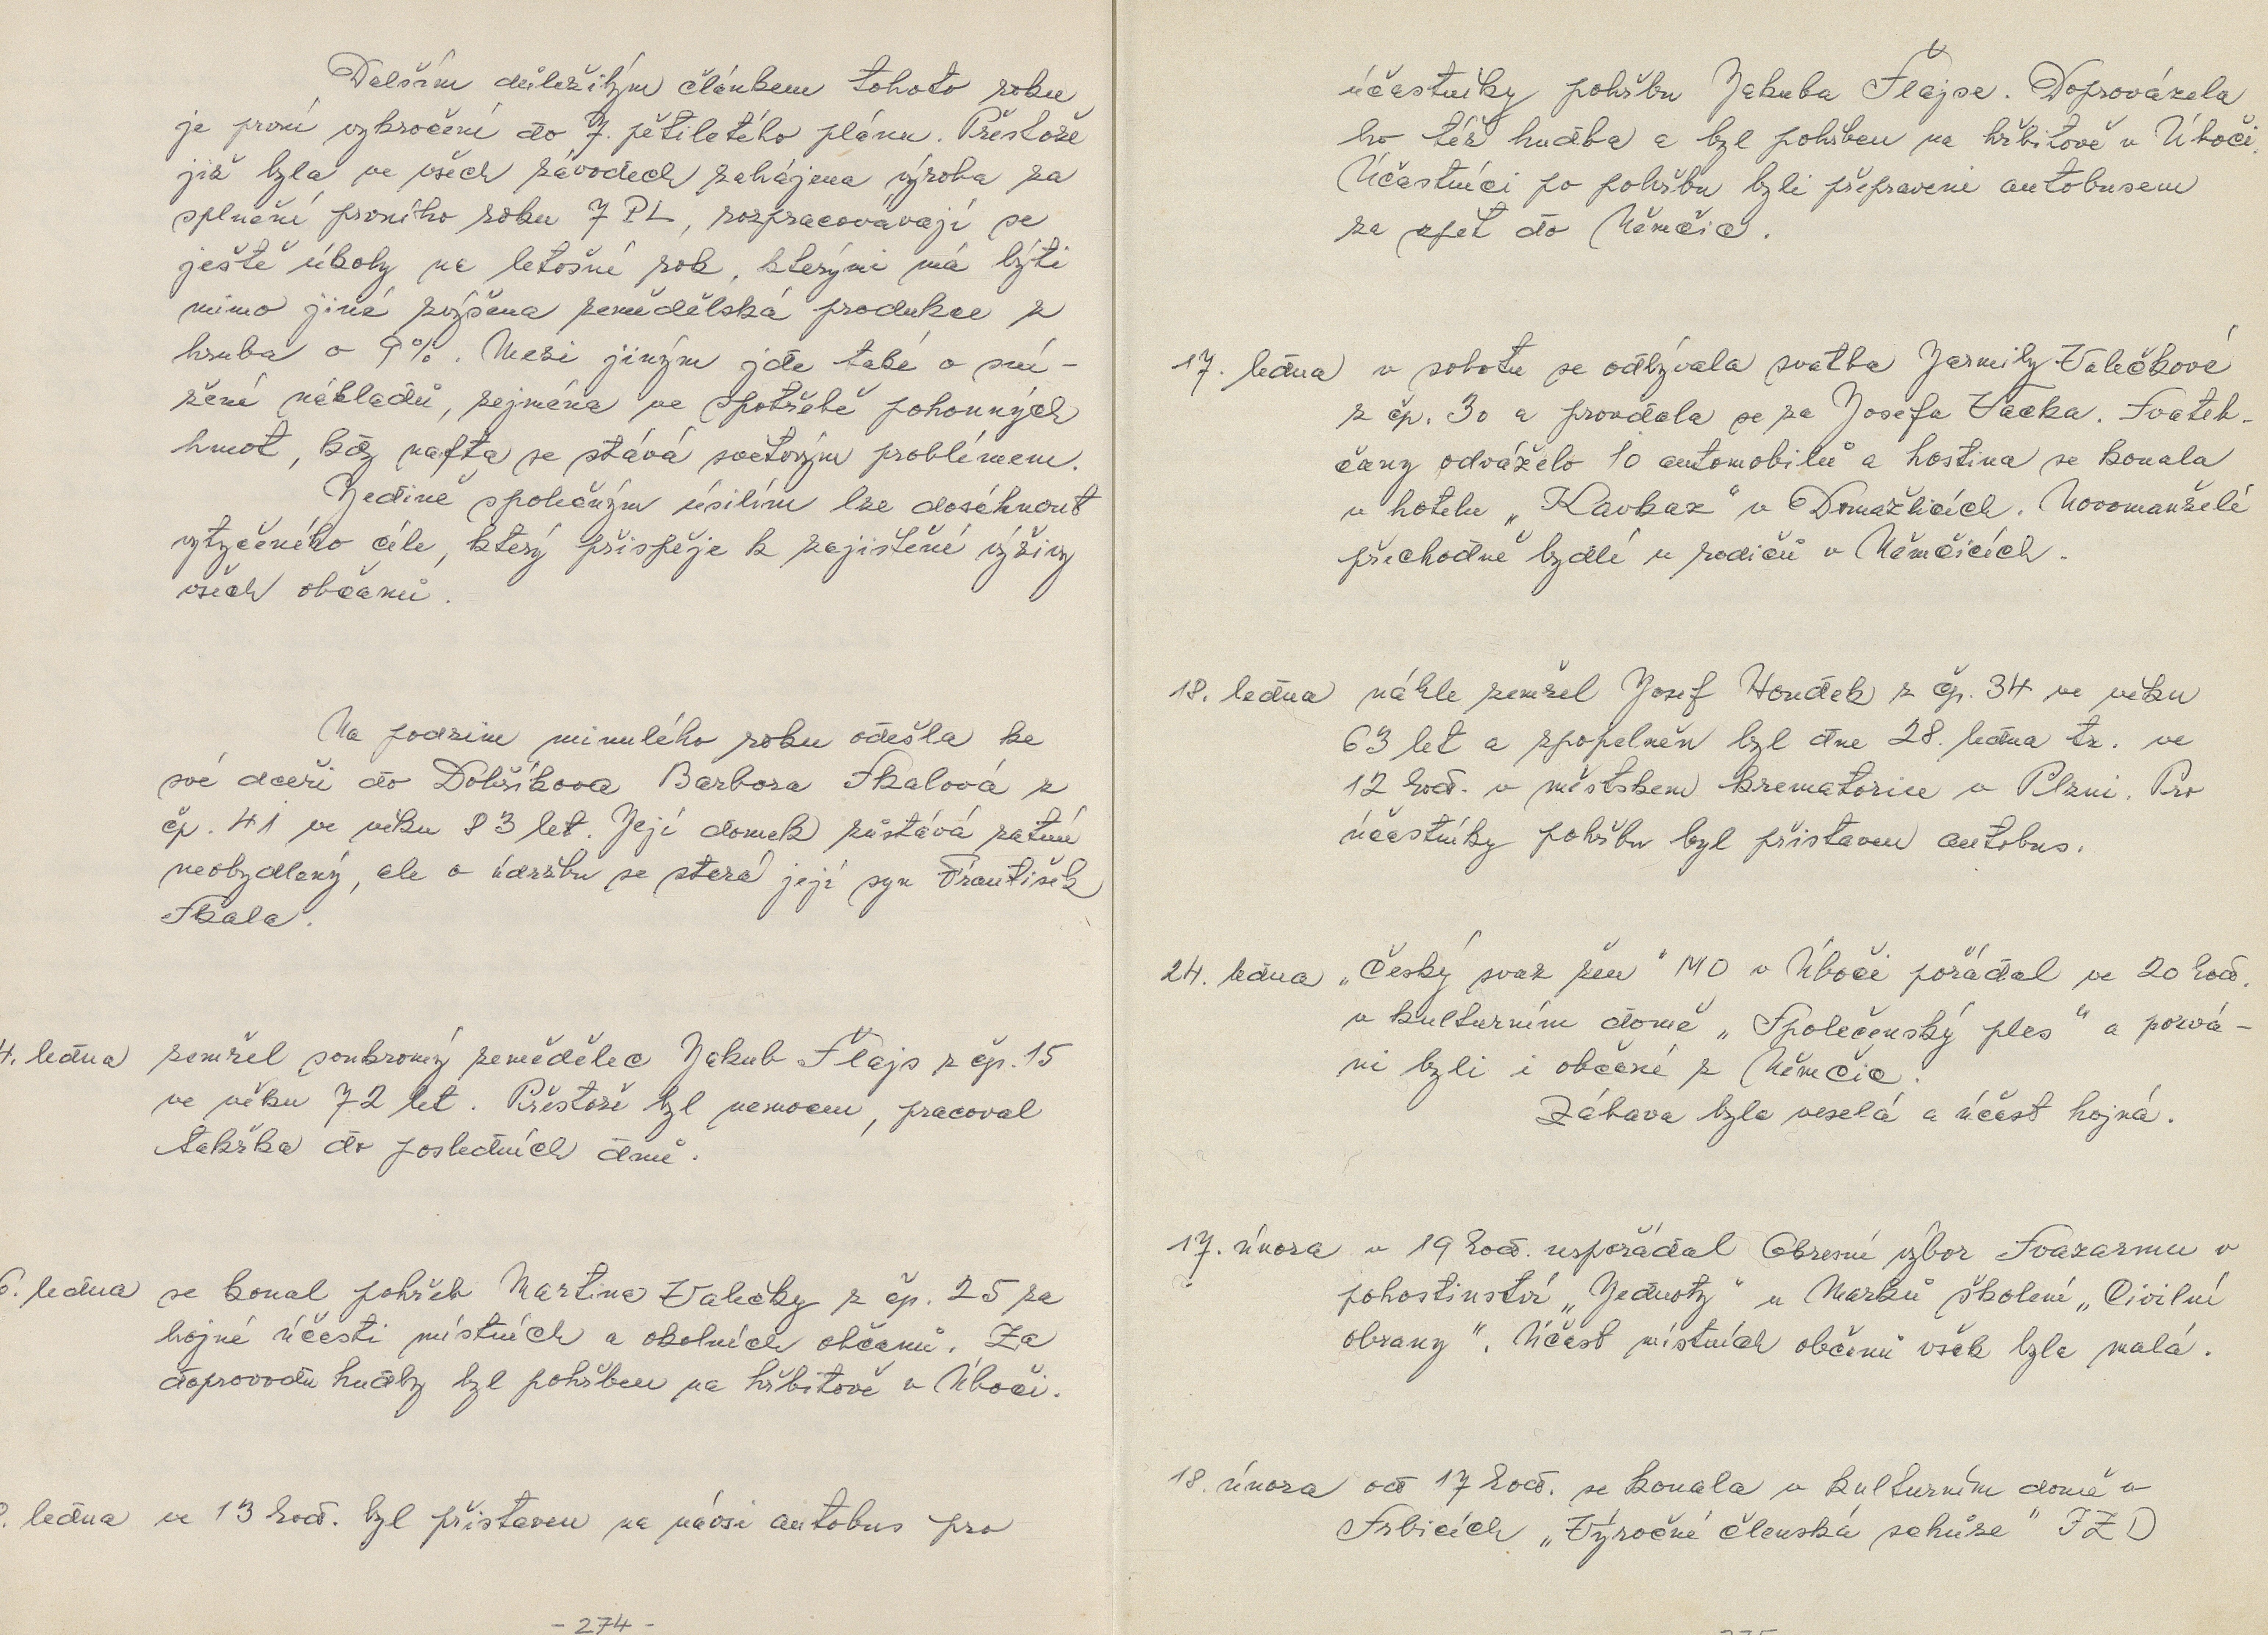 Dalším důležitým článkem tohoto roku
je první vykročení do 7. pětiletého plánu. Přestože
již byla ve všech závodech zahájena výroba za
splnění prvního roku 7 PL, rozpracovávají se
ještě úkoly na letošní rok, kterými má býti
mimo jiné zvýšena zemědělská produkce z
hruba o 9%. Mezi jiným jde také o sní-
žení nákladů, zejména ve spotřebě pohonných
hmot, kdy nafta se stává světovým problémem.
Jedině společným úsilím lze dosáhnout
vytyčeného cíle, který přispěje k zajištění výživy
všech občanů.
Na podzim minulého roku odešla ke
své dceři do Dobříkova Barbora Skalová z
čp. 41 ve věku 83 let. Její domek zůstává zatím
neobydlený, ale o údržbu se stará její syn František
Skala.
4. ledna zemřel soukromý zemědělec Jakub Šlajs z čp. 15
ve věku 72 let. Přestože byl nemocen, pracoval
takřka do posledních dnů.
6. ledna se konal pohřeb Martina Valečky z čp. 25 za
hojné účasti místních a okolních občanů. Za
doprovodu hudby byl pohřben na hřbitově v Úboči.
ledna ve 13 hod. byl přistaven na návsi autobus pro
- 274 -
účastníky pohřbu Jakuba Šlajse. Doprovázela
ho též hudba a byl pohřben na hřbitově v Úboči.
Účastníci po pohřbu byli přepraveni autobusem
za zpět do Němčic.
17. ledna v sobotu se odbývala svatba Jarmily Valečkové
z čp. 30 a provdala se za Josefa Vacka. Svateb-
čany odváželo 10 automobilů a hostina se konala
v hotelu „Kavkaz" v Domažlicích. Novomanželé
přechodně bydlí u rodičů v Němčicích.
18. ledna náhle zemřel Josef Houdek z čp. 34 ve věku
63 let a zpopelněn byl dne 28. ledna tr. ve
12 hod. v městskem krematoriu v Plzni. Pro
účastníky pohřbu byl přistaven autobus.
24. ledna „Český svaz žen" MO v Úboči pořádal ve 20 hod.
v kulturním domě „Společenský ples" a pozvá-
ni byli i občané z Němčic.
Zábava byla veselá a účast hojná.
17. února v 19 hod. uspořádal Okresní výbor Svazarmu v
pohostinství „Jednoty" u Marků školení „Civilní
obrany". Účast místních občanů však byla malá.
18. února od 17 hod. se konala v kulturním domě v
Srbicích „Výroční členská schůze" JZD